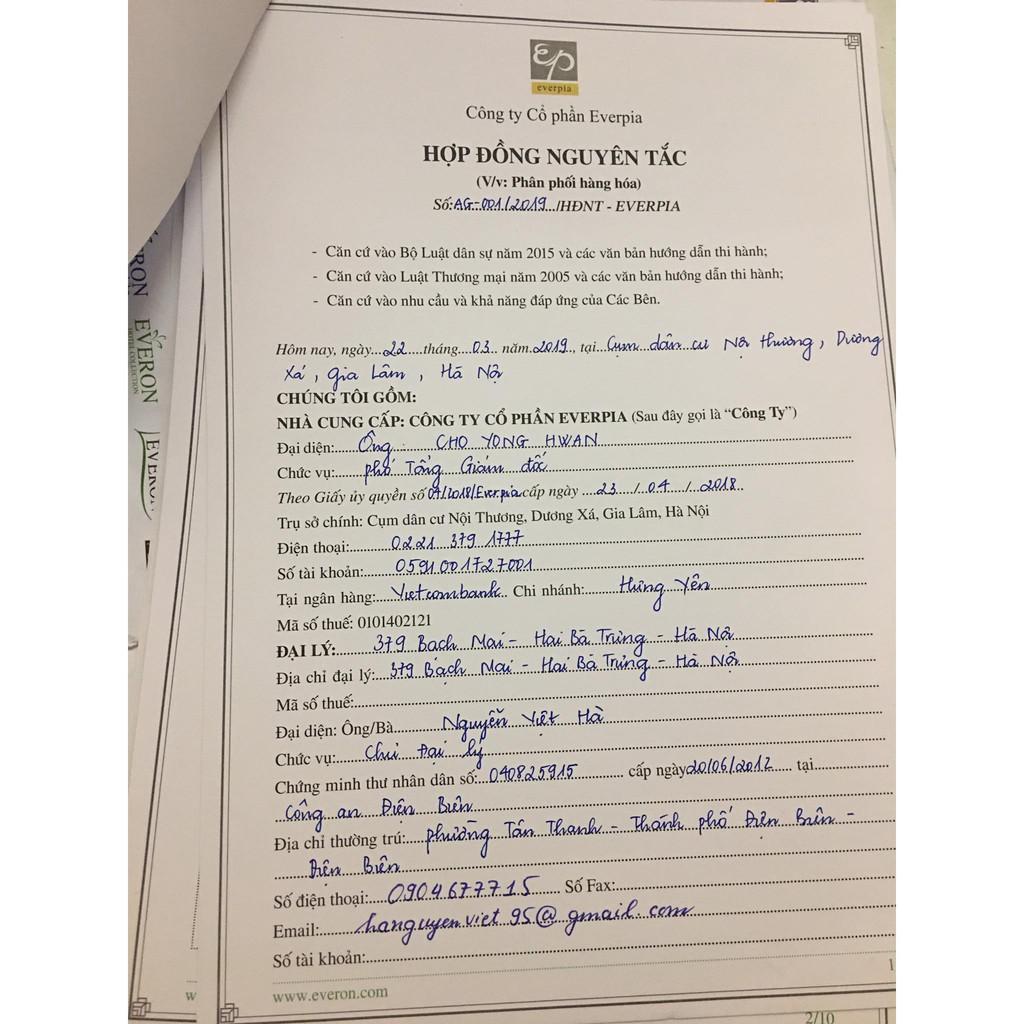 everpia
Công ty Cổ phần Everpia
HỢP ĐỒNG NGUYÊN TẮC
(V/v: Phân phối hàng hóa)
Số:AG-001/2019../HĐNT - EVERPIA
- Căn cứ vào Bộ Luật dân sự năm 2015 và các văn bản hướng dẫn thi hành;
- Căn cứ vào Luật Thương mại năm 2005 và các văn bản hướng dẫn thi hành;
- Căn cứ vào nhu cầu và khả năng đáp ứng của Các Bên.
Hôm nay, ngày...22....tháng...03.. năm.2019., tại...Cụm dân cư Nội Thương, Dương
Xá, Gia Lâm, Hà Nội
CHÚNG TÔI GỒM:
NHÀ CUNG CẤP: CÔNG TY CỔ PHẦN EVERPIA (Sau đây gọi là “Công Ty”)
Đại diện:....Ông CHO YONG HWAN
Chức vụ:....Phó Tổng Giám đốc
Theo Giấy ủy quyền số 04/2018/Everpia cấp ngày ...23..../..04.../...2018..
Trụ sở chính: Cụm dân cư Nội Thương, Dương Xá, Gia Lâm, Hà Nội
Điện thoại:....0221 379 1777
Số tài khoản:....0591001727001
Tại ngân hàng:...Vietcombank.. Chi nhánh:....Hưng Yên
Mã số thuế: 0101402121
ĐẠI LÝ:....379 Bạch Mai - Hai Bà Trưng - Hà Nội
Địa chỉ đại lý:...379 Bạch Mai - Hai Bà Trưng - Hà Nội
Mã số thuế:....
Đại diện: Ông/Bà....Nguyễn Việt Hà
Chức vụ:....Chủ Đại lý
Chứng minh thư nhân dân số:..040825915.... cấp ngày20/06/2012.... tại....
Công an Điện Biên
Địa chỉ thường trú:...phường Tân Thanh - Thành phố Điện Biên -
Điện Biên
Số điện thoại:...0904677715.... Số Fax:....
Email:....hanguyenviet95@gmail.com
Số tài khoản:....
1
www.everon.com
w
2/10
EVERON
HOTEL COLLECTION